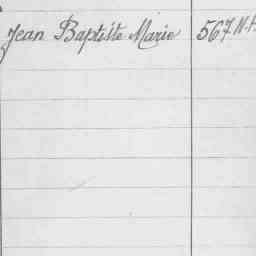 Jean Baptiste Marie 567 N.t.